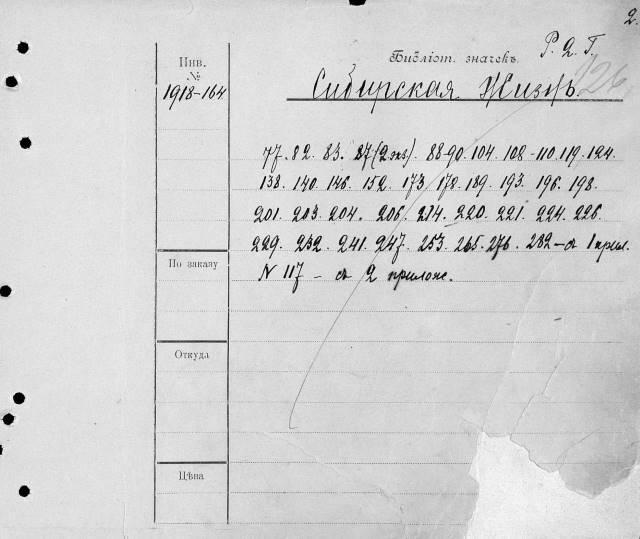 2.
Инв.
№
1918-164
Библіот. значекъ
Р. 2. Г.
126
Сибирская Жизнь
77. 82. 83. 87 (2 экз). 88-90. 104. 108-110. 119. 124.
138. 140. 146. 152. 173. 178. 189. 193. 196. 198.
201. 203. 204. 206. 214. 220. 221. 224. 226.
229. 232. 241. 247. 253. 265. 276. 282 – съ 1 прил.
N 117 – съ 2 прилож.
По заказу
Откуда
Цѣна